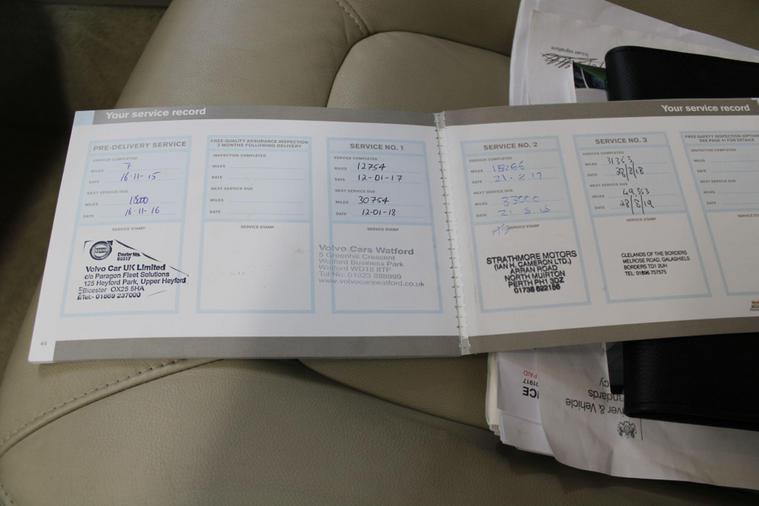 Your service record
PRE-DELIVERY SERVICE
SERVICE COMPLETED
MILES 7
DATE 16-11-15
NEXT SERVICE DUE
MILES 18000
DATE 16-11-16
SERVICE STAMP
Volvo Car UK Limited
c/o Paragon Fleet Solutions
125 Heyford Park, Upper Heyford
Bicester OX25 5HA
Tel:- 01869 237000
FREE QUALITY ASSURANCE INSPECTION
3 MONTHS FOLLOWING DELIVERY
INSPECTION COMPLETED
MILES
DATE
NEXT SERVICE DUE
MILES
DATE
SERVICE STAMP
SERVICE NO. 1
SERVICE COMPLETED
MILES 12754
DATE 12-01-17
NEXT SERVICE DUE
MILES 30754
DATE 12-01-18
SERVICE STAMP
Volvo Cars Watford
5 Greenhill Crescent
Watford Business Park
Watford WD18 8TF
www.volvocarswatford.co.uk
Your service record
SERVICE NO. 2
SERVICE COMPLETED
MILES
DATE
NEXT SERVICE DUE
MILES
DATE
SERVICE STAMP
STRATHMORE MOTORS
(IAN H. CAMERON LTD.)
ARRAN ROAD
NORTH MUIRTON
PERTH PH1 3DZ
SERVICE NO. 3
SERVICE COMPLETED
MILES 31363
DATE
NEXT SERVICE DUE
MILES 49363
DATE
SERVICE STAMP
CLELANDS OF THE BORDERS
MELROSE ROAD, GALASHIELS
BORDERS TD1 2UH
TEL: 01896 757575
INSPECTION COMPLETED
MILES
DATE
NEXT SERVICE DUE
MILES
DATE
PAID
Vehicle